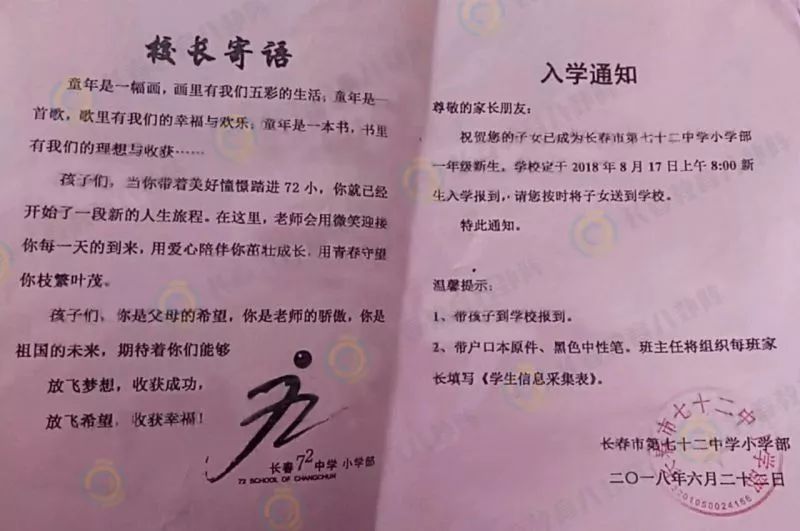 校长寄语
童年是一幅画，画里有我们五彩的生活；童年是一
首歌，歌里有我们的幸福与欢乐；童年是一本书，书里
有我们的理想与收获……
孩子们，当你带着美好憧憬踏进72小，你就已经
开始了一段新的人生旅程。在这里，老师会用微笑迎接
你每一天的到来，用爱心陪伴你茁壮成长，用青春守望
你枝繁叶茂。
孩子们，你是父母的希望，你是老师的骄傲，你是
祖国的未来，期待着你们能够
放飞梦想，收获成功，
放飞希望，收获幸福！
长春72中学 小学部
72 SCHOOL OF CHANGCHUN
入学通知
尊敬的家长朋友：
祝贺您的子女已成为长春市第七十二中学小学部
一年级新生，学校定于2018年8月17日上午8:00新
生入学报到，请您按时将子女送到学校。
特此通知。
温馨提示：
1、带孩子到学校报到。
2、带户口本原件、黑色中性笔。班主任将组织每班家
长填写《学生信息采集表》。
长春市第七十二中学小学部
二〇一八年六月二十 日